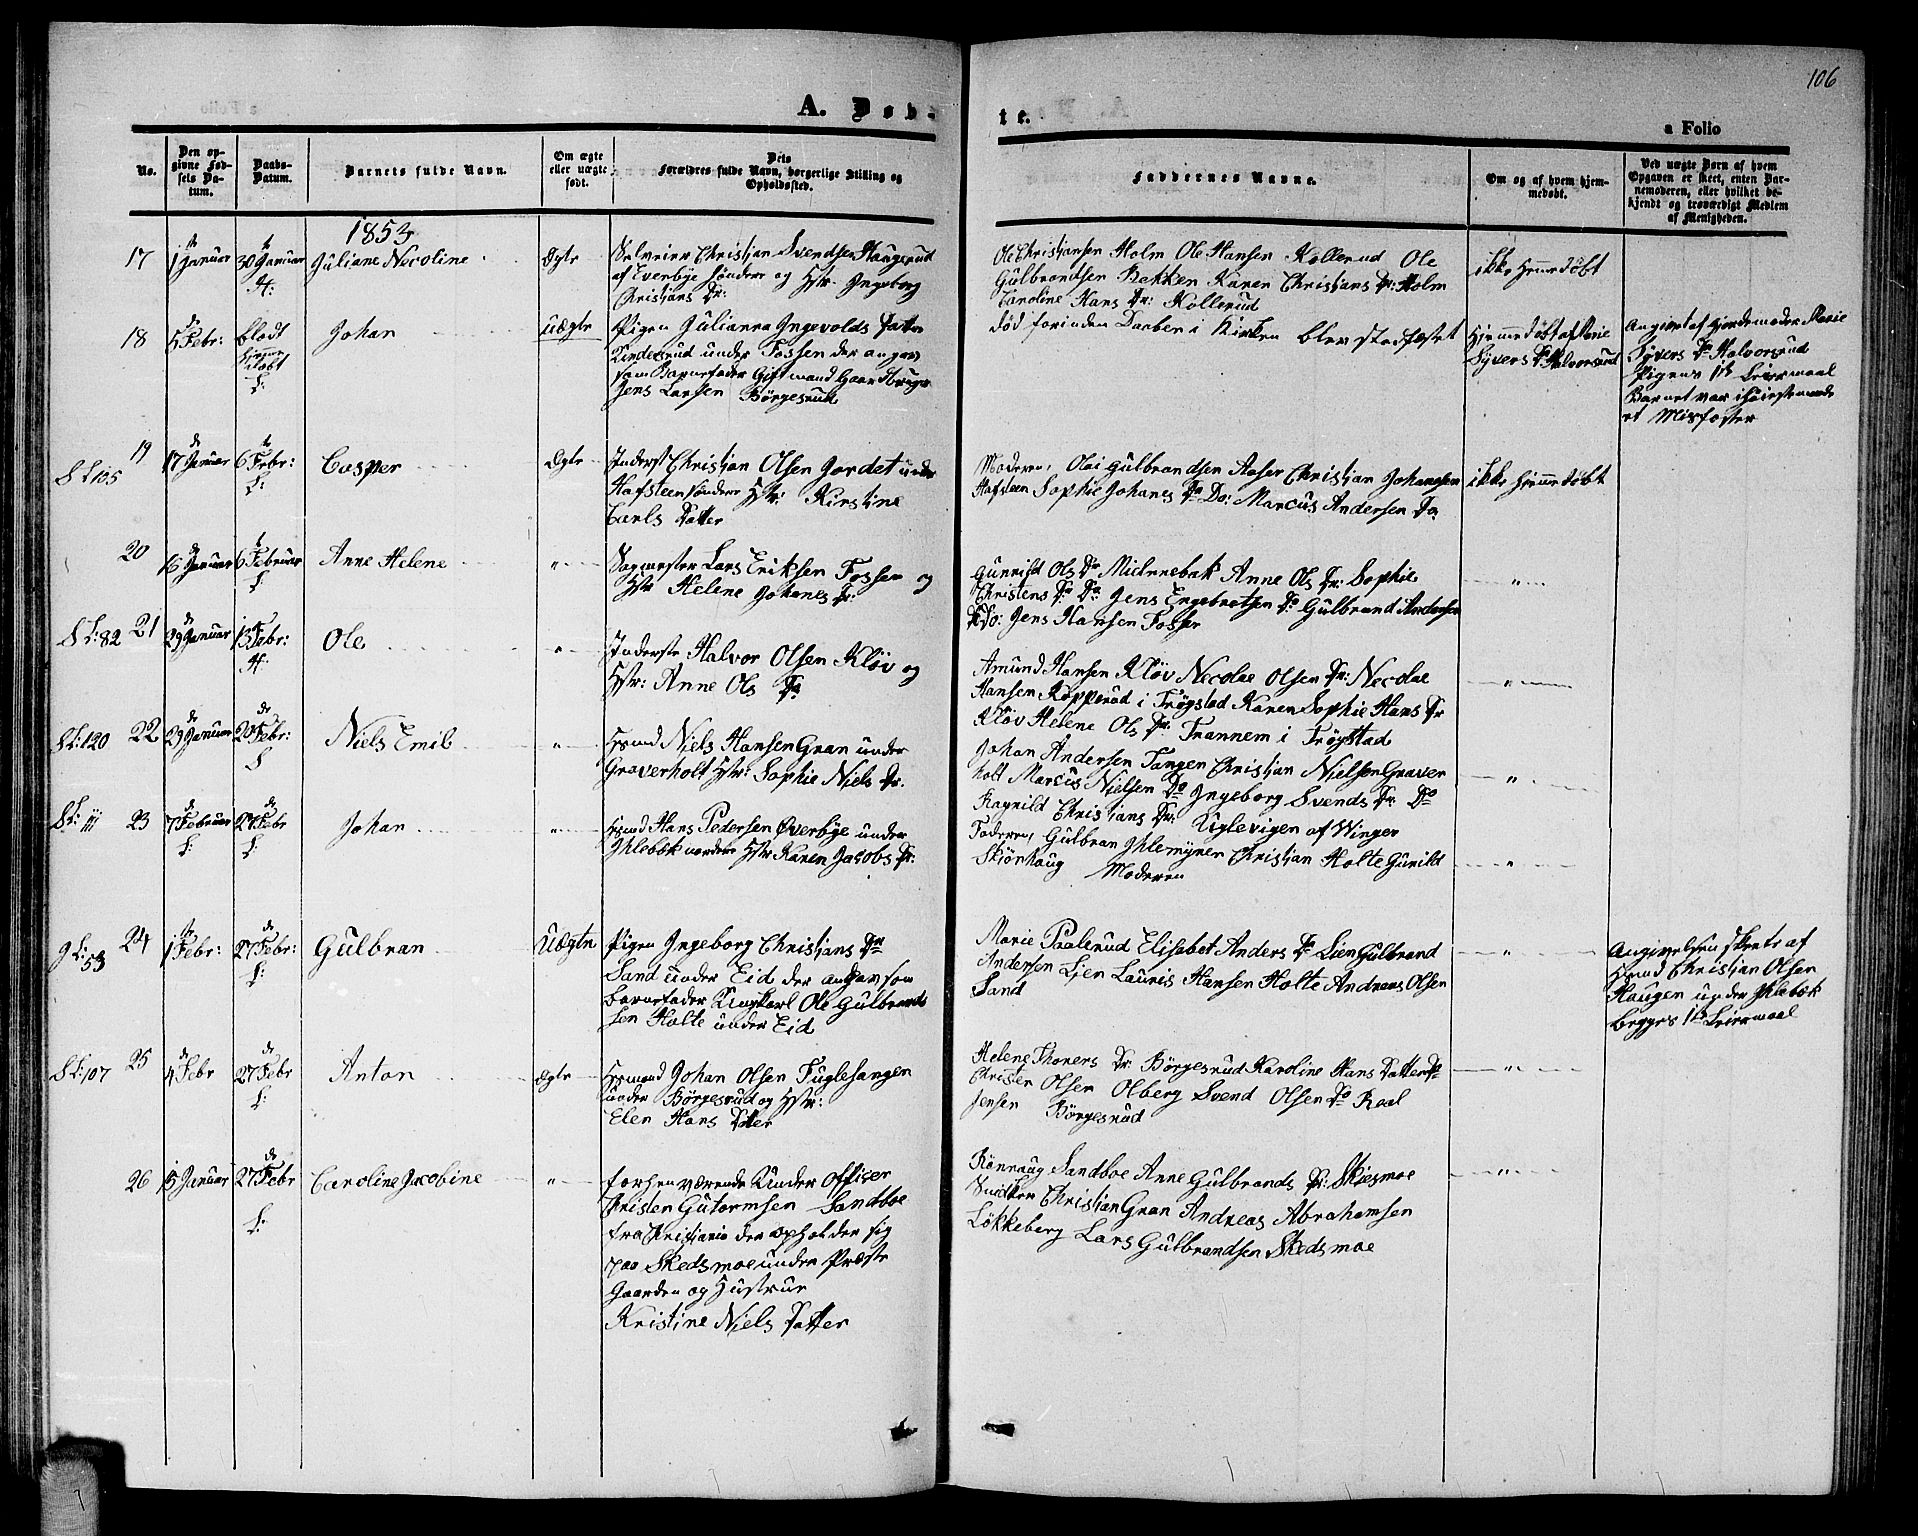 106
A. Døb-
te.
a Folio
No.
Den op-
givne Fød-
sels Da-
tum.
Daabs-
Datum.
Barnets fulde Navn.
Om ægte
eller uægte
født.
Dets
Forældres fulde Navn, borgerlige Stilling og
Opholdssted.
Faddernes Navne.
Om og af hvem hjem-
medøbt.
Ved uægte Børn af hvem
Opgaven er skeet, enten Bar-
nemoderen, eller hvilket be-
kjendt og troværdigt Medlem
af Menigheden.
1853
17
1 Januar
30 Januar
H:
Juliane Necoline
Ægte
Selveier Christjan Svendsen Haugerud
af Evenbye søndere og Hstr. Ingeborg
Christjans Dr:
Ole Christjansen Holm Ole Hansen Kollerud Ole
Gulbrandsen Bekken Karen Christjans Dr: Holm
Caroline Hans Dr: Kollerud
ikke Hjemedøbt
18
5 Febr:
blodt
hjemme
døbt
S:
Johan
Uægte
Pigen Julianna Ingevolds Datter
Kindesrud under Fossen der angav
som Barnefader Gift mand Gaardbruger
Jens Larsen Börgesrud
død forinden Daaben i Kirken blev stadfæstet
Hjemmedøbt af Marie
Syvers Dr Halvorsrud
Angivet af Gjordemoder Marie
Syvers Dr Halvorsrud
Pigens 1ste Leiermaal
Barnet var i høieste maade
et Misfoster
SL 105
19
17 Januar
6 Febr:
S:
Casper
Ægte
Inderst Christjan Olsen Jordet under
Hafsteen søndere Hstr: Kirstine
Carls Datter
Moderen, Olai Gulbrandsen Aaser Christjan Johansen
Hafsteen Sophie Johanes Dr Do: Marcus Andersen Do
ikke Hjemedøbt
20
16 Januar
6 Februar
S:
Anne Helene
"
Sagmester Lars Eriksen Fossen og
Hstr Helene Johanes Dr:
Gunnild Ols Dr Midtnebak Anne Ols Dr: Sophie
Christens Dr Do: Jens Engebretsen Do Gulbrand Andersen
Do: Jens Hansen Fosser
"
SL: 82
21
29 Januar
13 Febr:
H:
Ole
"
Inderste Halvor Olsen Kløv og
Hstr: Anne Ols Dr
Amund Hansen Kløv Necolae Olsen Do: Necolae
Hansen Kopperud i Trögstad Karen Sophie Hans Dr
Kløv Helene Ols Dr: Trannem i Trøgstad
"
SL: 120
22
29 Januar
20 Febr:
S
Niels Emil
"
Hsmd Niels Hansen Gran under
Graverholt Hstr: Sophie Niels Dr.
Johan Andersen Tangen Christjan Nielsen Graver
holt Marcus Nielsen Do Ingeborg Svends Dr: Do
Ragnild Christjans Dr: Kiglevigen af Winger
"
SL: 111
23
7 Februar
S:
27 Febr
S:
Johan
"
Hsmd Hans Pedersen Øverbye under
Ihlebæk nordere Hstr Karen Jacobs Dr:
Faderen, Gulbran Ihlemyren Christjan Holte Gunild
Skiönhaug Moderen
"
GL: 53
24
1 Febr:
27 Febr:
S:
Gulbran
Uægte
Pigen Ingeborg Christjans Dr
Sand under Eid der angav som
barnefader Ungkarl Ole Gulbrand
sen Holte under Eid
Marie Paalerud Elisabet Anders Dr Lien Gulbrand
Andersen Lien Lauris Hansen Holte Andreas Olsen
Sand
"
Angivelsen skeete af
Hsmd Christjan Olsen
Haugen under Ihlebæk
begges 1ste Leiermaal
SL: 107
25
4 Febr
27 Febr
S:
Anton
Ægte
Hsmand Johan Olsen Fuglesangen
under Börgesrud og Hstr:
Elen Hans Datter
Helene Thoners Dr: Börgesrud Karoline Hans Datter Do
Christen Olsen Olberg Svend Olsen Do Roal
Jensen Börgesrud
"
26
15 Januar
27 Febr
S:
Caroline Jacobine
"
forhen værende Under Officer
Christen Gutormsen Sandboe
fra Christiania der opholder sig
paa Skedsmoe under Præste
Gaarden og Hustrue
Kristine Niels Datter
Rönnaug Sandboe Anne Gulbrands Dr: Skiesmoe
Snedker Christjan Gran Andreas Abrahamsen
Løkkeberg Lars Gulbrandsen Skedsmoe
"